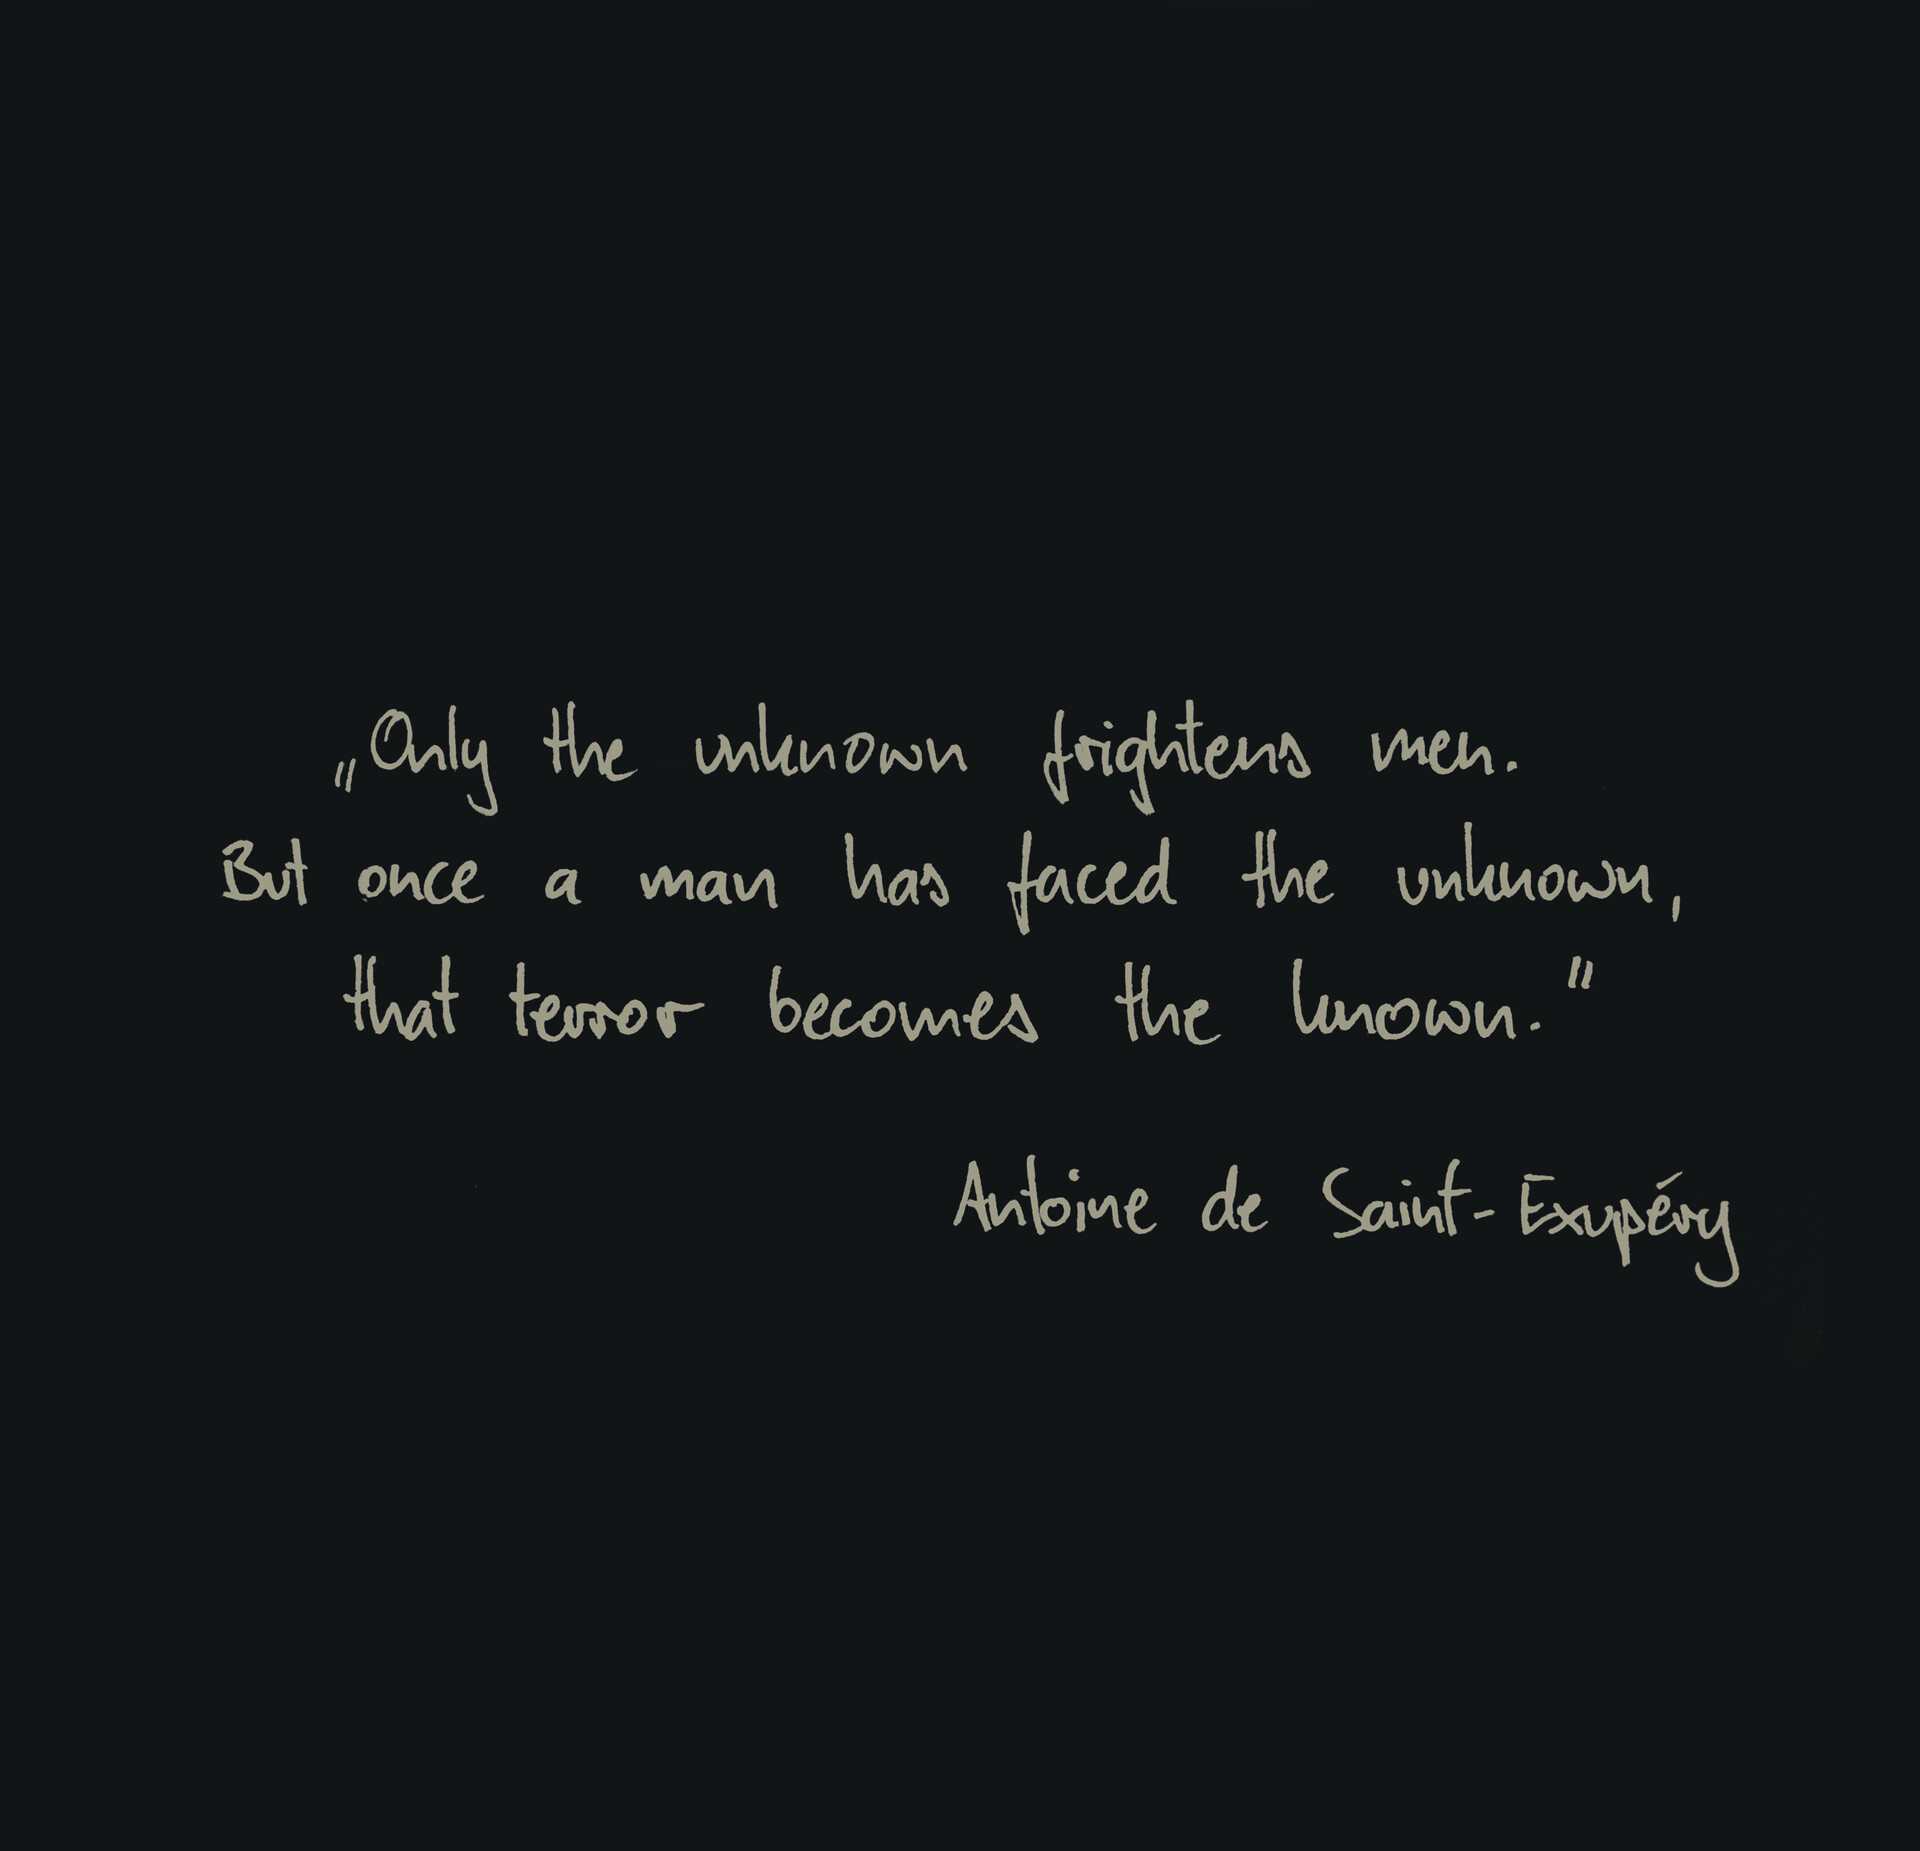 „Only the unknown frightens men.
But once a man has faced the unknown,
that terror becomes the known."
Antoine de Saint-Exupéry